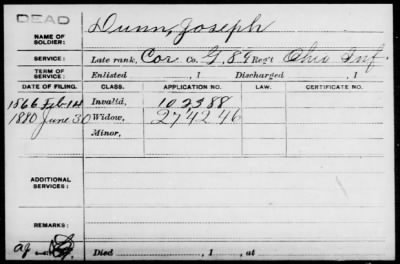 DEAD
NAME OF SOLDIER: Dunn, Joseph
SERVICE: Late rank, Cor Co. G. 87 Reg't Ohio Inf.
TERM OF SERVICE: Enlisted , 1 Discharged , 1
DATE OF FILING. CLASS. APPLICATION NO. LAW. CERTIFICATE NO.
1866 Feb 14 Invalid, 102388
1880 June 30 Widow, 274246
Minor,
ADDITIONAL SERVICES:
REMARKS:
Died , 1 , at